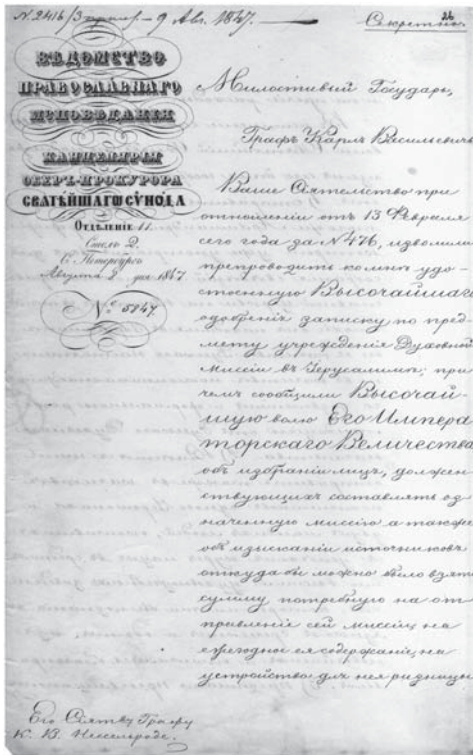 N. 2416/3 9 Авг. 1847.
Секретно.
26
ВѢДОМСТВО
ПРАВОСЛАВНАГО
ИСПОВѢДАНІЯ
КАНЦЕЛЯРІЯ
ОБЕРЪ-ПРОКУРОРА
СВЯТѢЙШАГО СѴНОДА
ОТДѢЛЕНІЕ II.
Столъ 2.
С. Петербургъ
Августа 8 дня 1847
№ 5847.
Милостивый Государь,
Графъ Карлъ Васильевичъ
Ваше Сіятельство при
отношеніи отъ 13 Февраля
сего года за № 476, изволили
препроводить ко мнѣ удо-
стоенную Высочайшаго
одобренія записку по пред-
мету учрежденія Духовной
Миссіи въ Іерусалимѣ; при
чемъ сообщили Высочай-
шую волю Его Импера
торскаго Величества
объ избраніи лицъ, должен
ствующихъ составлять оз-
наченную миссію а также
объ изысканіи источниковъ
откуда бы можно было взять
сумму потребную на от
правленіе сей миссіи, на
ежегодное ея содержаніе, на
устройство для нея ризницы
Его Сіятву Графу
К. В. Нессельроде.